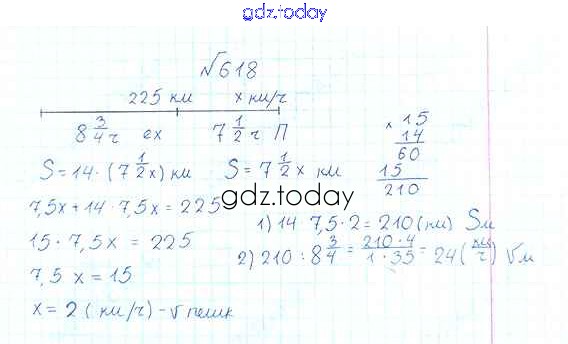 gdz.today
№618
225 км x км/ч
8 3/4 ч ех 7 1/2 ч П
S = 14 · (7 1/2 x) км S = 7 1/2 x км
7,5x + 14 · 7,5x = 225
15 · 7,5x = 225
7,5 x = 15
x = 2 (км/ч) - v пешк
× 15
14
60
15
210
gdz.today
1) 14 · 7,5 · 2 = 210 (км) Sм
2) 210 : 8 3/4 = 210 · 4 / 1 · 35 = 24 (км/ч) Vм